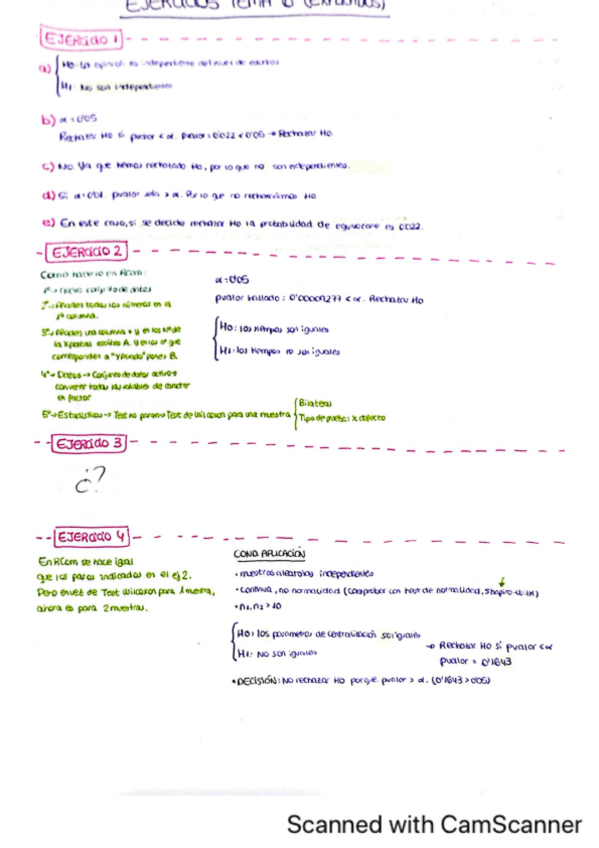 EJERCICIOS TEMA 6 (EXPLICADOS)
EJERCICIO 1
a) H0: La opinión es independiente del nivel de estudios
H1: No son independientes
b) α = 0'05
Rechazar H0 si pvalor < α. pvalor: 0'022 < 0'05 → Rechazar H0
c) No. Ya que hemos rechazado H0, por lo que no son independientes.
d) Si α = 0'01. pvalor sería > α. Por lo que no rechazaríamos H0.
e) En este caso, si se decide rechazar H0 la probabilidad de equivocarse es 0'022.
EJERCICIO 2
Como hacerlo en RCom:
1º → nuevo conjunto de datos
2º → Añades todos los números en la
1ª columna.
3º → Añades una columna + y en los nº de
la X pones A. Y en los nº que
corresponden a "Y" pones B.
4º → Datos → Conjunto de datos activo →
convertir todas las variables de carácter
en factor
5º → Estadísticos → Test no param → Test de Wilcoxon para una muestra
Bilateral
Tipo de prueba: X defecto
α = 0'05
pvalor hallado: 0'00001277 < α. Rechazar H0
H0: los tiempos son iguales
H1: los tiempos no son iguales
EJERCICIO 3
¿?
EJERCICIO 4
En RCom se hace igual
que los pasos indicados en el ej 2.
Pero en vez de Test Wilcoxon para 1 muestra,
ahora es para 2 muestras.
COND. APLICACIÓN
• muestras aleatorias independientes
• continua, no normalidad (comprobar con test de normalidad, Shapiro-Wilk)
• n1, n2 > 10
H0: los parámetros de centralización son iguales
H1: No son iguales
→ Rechazar H0 si pvalor < α
pvalor = 0'1643
• DECISIÓN: No rechazar H0 porque pvalor > α. (0'1643 > 0'05)
Scanned with CamScanner